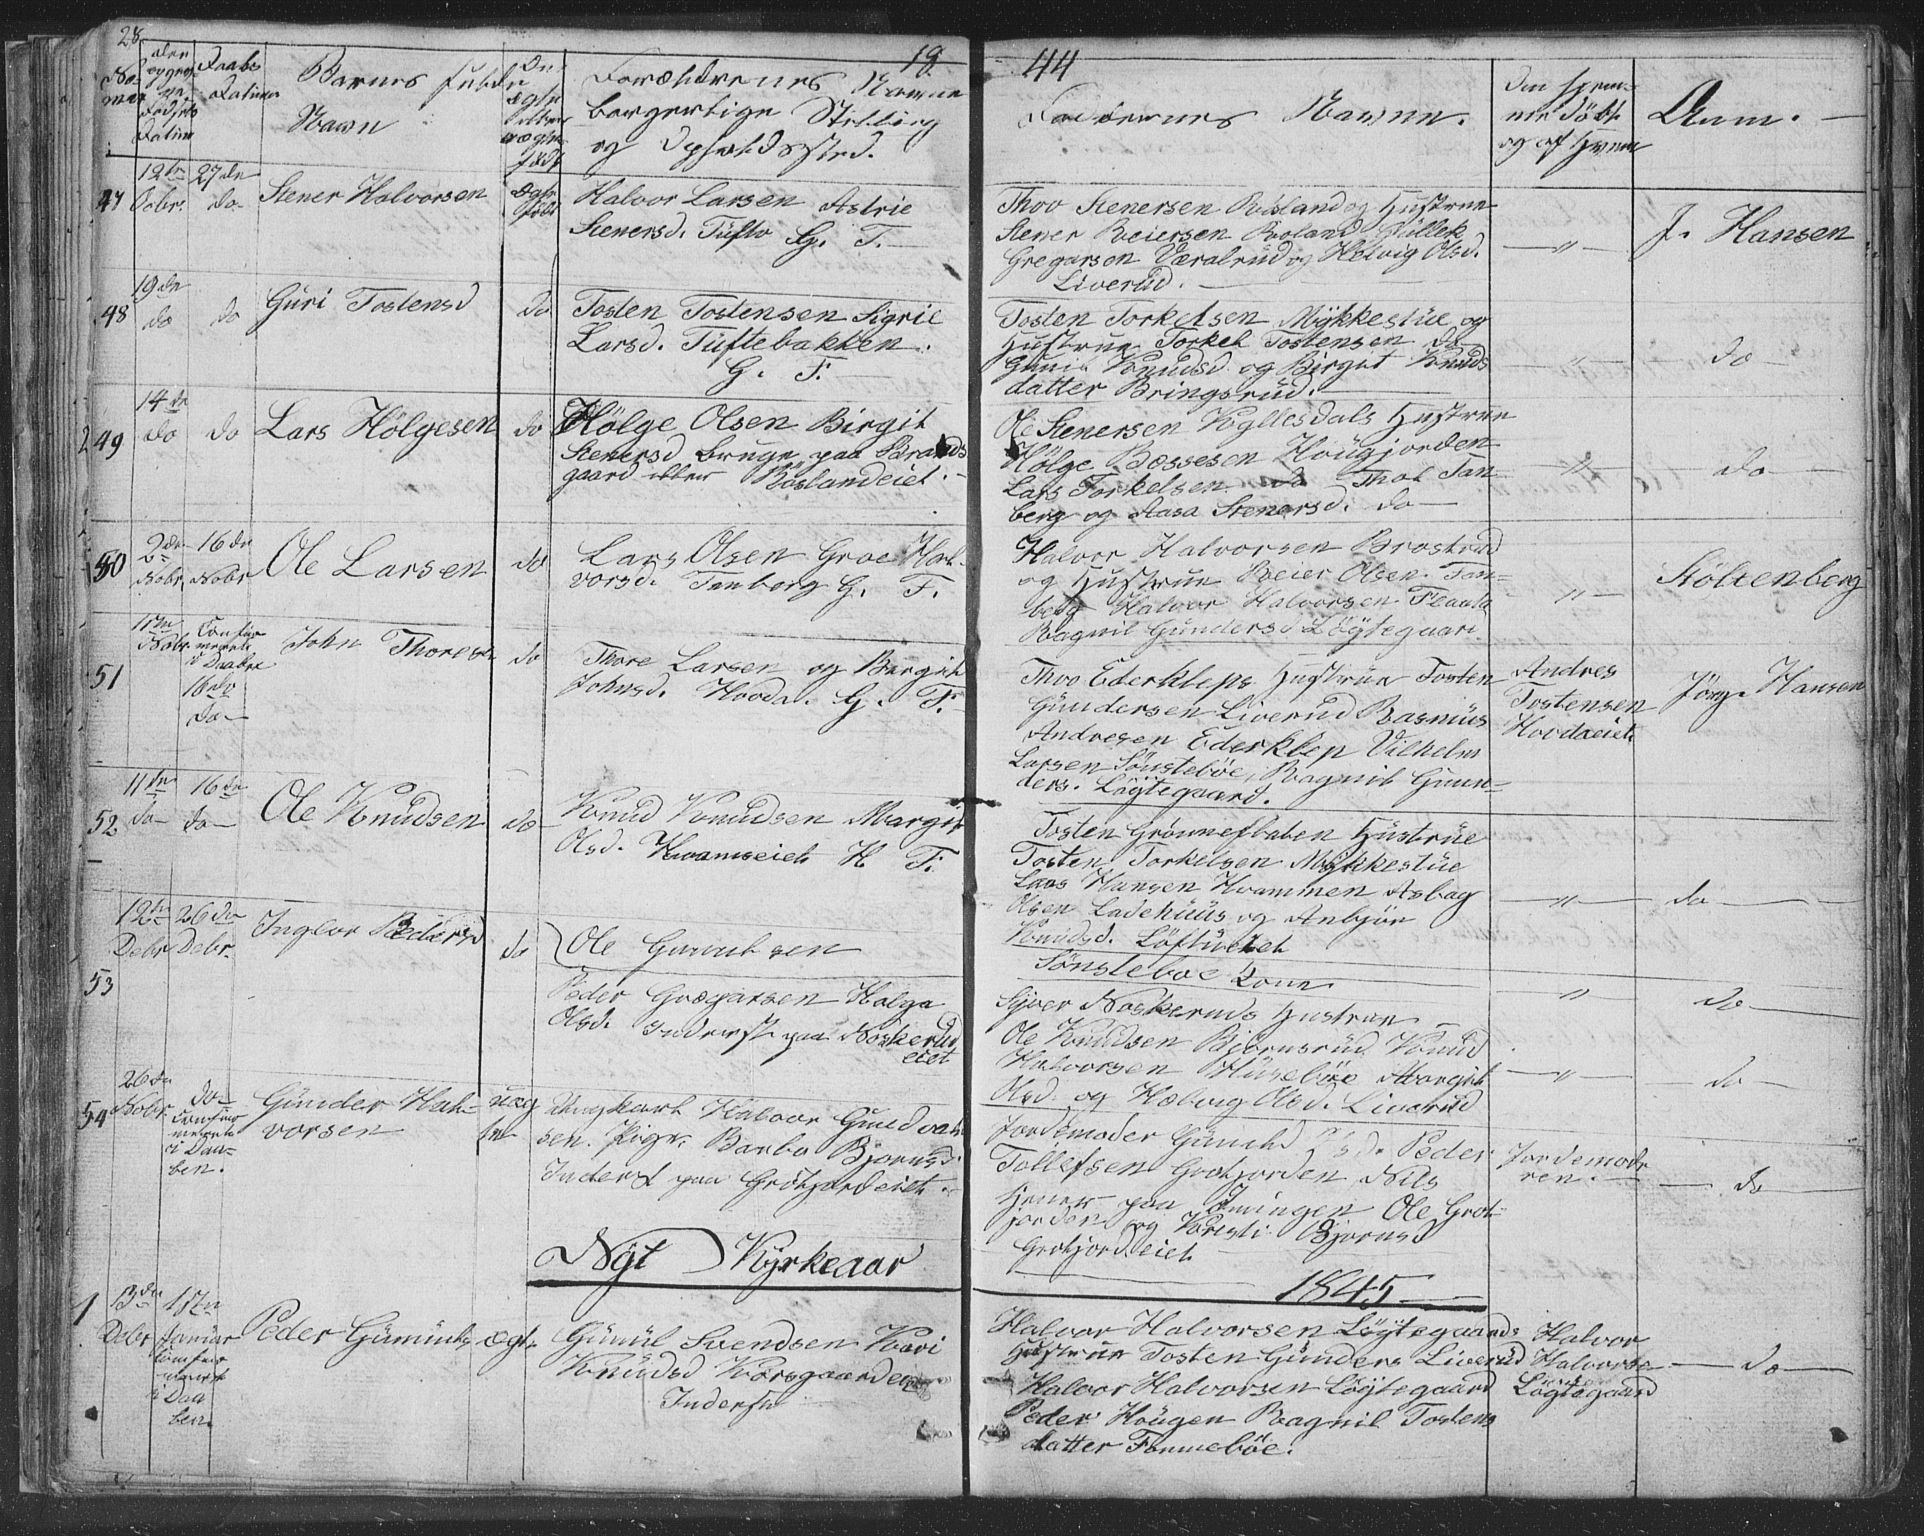 28
18
44
No-
mer
den
opgeg
ne
Fødsels
Datum
Daabs
Datum
Barnes fulde
Navn
Om
ægte
eller
uægte
født
Forældrenes Navne
borgerlige Stilling
og Opholdssted.
Faddernes Navne.
Om hjem-
me døbt
og af hvem
Anm.
47
12te
Octbr.
27de
do
Stener Halvorsen
Ægte
født
Halvor Larsen Astrie
Stenersd. Tufto G. F.
Thov Stenersen Rosland og Hustrue
Stener Reiersen Roland
Gregarsen Væralrud og Helvig Olsd.
Liverud.
"
J. Hansen
48
19de
do
do
Guri Tostensd
do
Tosten Tostensen Sigrie
Larsd. Tuftebakken.
G. F.
Tosten Torkelsen Mykkestue og
Hustrue Torkel Tostensen do
Guri Knudsd. og Birgit Knuds
datter Bringsrud.
"
do
49
14de
do
do
Lars Hölgesen
do
Hölge Olsen Birgit
Stenersd bruge paa Strands
gaard eller Röslandeiet.
Ole Stenersen Hustrue
Hölge Bessesen Hougjorden
Lars Torkelsen do Thol Tan-
berg og Aasa Stenersd. do
"
do
50
2de
Nobr
16de
Nobr
Ole Larsen
do
Lars Olsen Groe Hal-
vorsd. Tanberg G. F.
Halvor Halvorsen Brostrud
og Hustrue Reier Olsen Tan-
berg Halvor Halvorsen Flaata
Ragnil Gundersd Löytegaard
"
Stoltenberg
51
11te
Nobr
Confir
meret
i Daaben
16de
do
John Thoresen
do
Thore Larsen og Bergit
Johnsd. Hovda. G. F.
Thov Ederkleps Hustrue Tosten
Gundersen Liverud Rasmus
Andresen Ederklep Vilhelm
Larsen Sönsteböe, Ragnil Gun-
ders. Löytegaard.
Andres
Tostensen
Hovdaeiet
Jörg. Hansen
52
11te
do
16de
do
Ole Knudsen
do
Knud Knudsen Margit
Olsd. Kvamseiet H F.
Tosten Grönneflaten Hustrue
Tosten Torkelsen Mykkestue
Lars Hansen Kvammen Asbag
Olsen Ladehuus og Anbjör
Knudsd. Löftueiet
"
do
53
12te
Debr
26de
Debr.
Ingler Pedersd
do
Ole Gunulsen
Peder Gregarsen Helga
Olsd. Inderst paa Noskerud
eiet
Sönsteboe Kone
Syver Noskeruds Hustrue
Ole Knudsen Björnsrud Knud
Halvorsen Huseböe Margit
Olsd. og Helvig Olsd. Liverud
"
do
"
do
54
26de
Nobr
do
Confir
meret
i Daa-
ben.
Gunder Hal-
vorsen
uæg
te
Ungkarl Halvor
sen. Pige. Barbo Bjornsd.
Inderst paa Grötjordeiet.
Jordemoder Gunild Olsd. Peder
Tollefsen Grotjorden Nils
tjener paa Imingen Ole Grot-
jorden og Kristi Bjornsd
Grotjordeiet
Jordemode-
ren.
do
Nyt Kyrkeaar
1845
1
13de
Debr
1ste
Januar
Confir
meret
i Daa
ben.
Peder Gunulsen
ægte
Gunul Svendsen Kari
Knudsd Korsgaarden
Inderste
Halvor Halvorsen Löytegaards
Hustrue Tosten Gunders Liverud
Halvor Halvorsen Löytegaard
Peder Hougen Ragnil Tostens
datter Fönneböe.
Halvor
Halvorse
Löytegaard
do